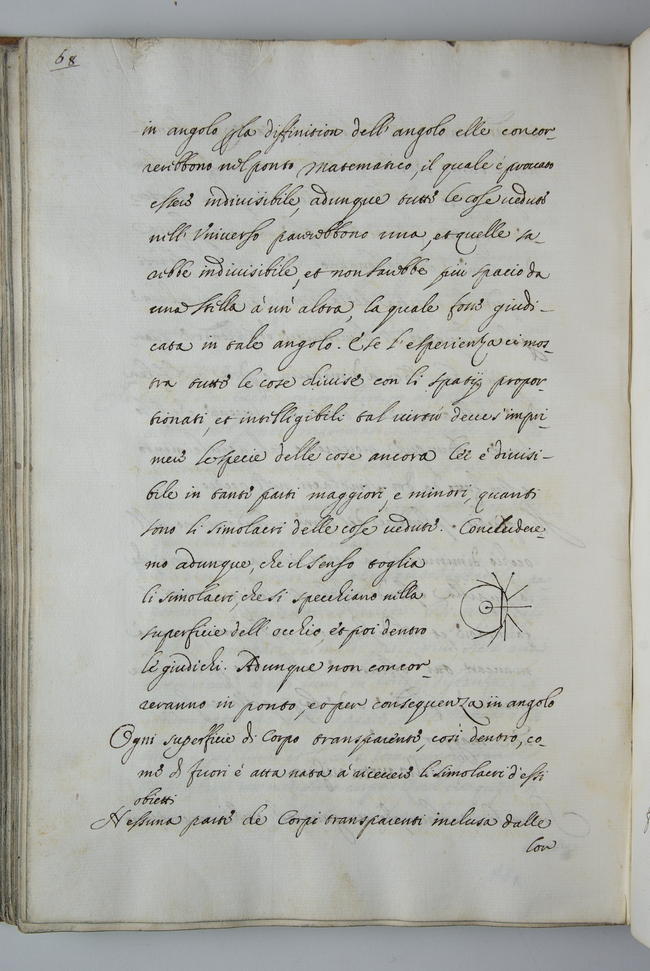 68
in angolo p la diffinition dell' angolo elle concor-
rerebbono nel ponto Matematico, il quale è provato
essere indivisibile, adunque tutte le cose vedute
nell' Universo parerebbono una, et quelle sa-
rebbe indivisibile, et non sarebbe più spacio da
una stella à un' altra, la quale fosse giudi-
cata in tale angolo. E se l' esperienza ci mos-
tra tutte le cose divise con li spatij propor-
tionati, et intelligibili tal virtù dove s' impri-
mere le specie delle cose ancora lei è divisi-
bile in tanti parti maggiori, e minori, quanti
sono li simolacri delle cose vedute. Concludere-
mo adunque, che il senso toglia
li simolacri, che si specchiano nella
superficie dell' occhio, et poi dentro
le giudichi. Adunque non concor-
reranno in ponto, e per consequenza in angolo
Ogni superficie di Corpo transparente, così dentro, co-
me di fuori è atta nata à ricevere li simolacri d' essi
obietti
Nessuna parte de Corpi transparenti inclusa dalle
lor